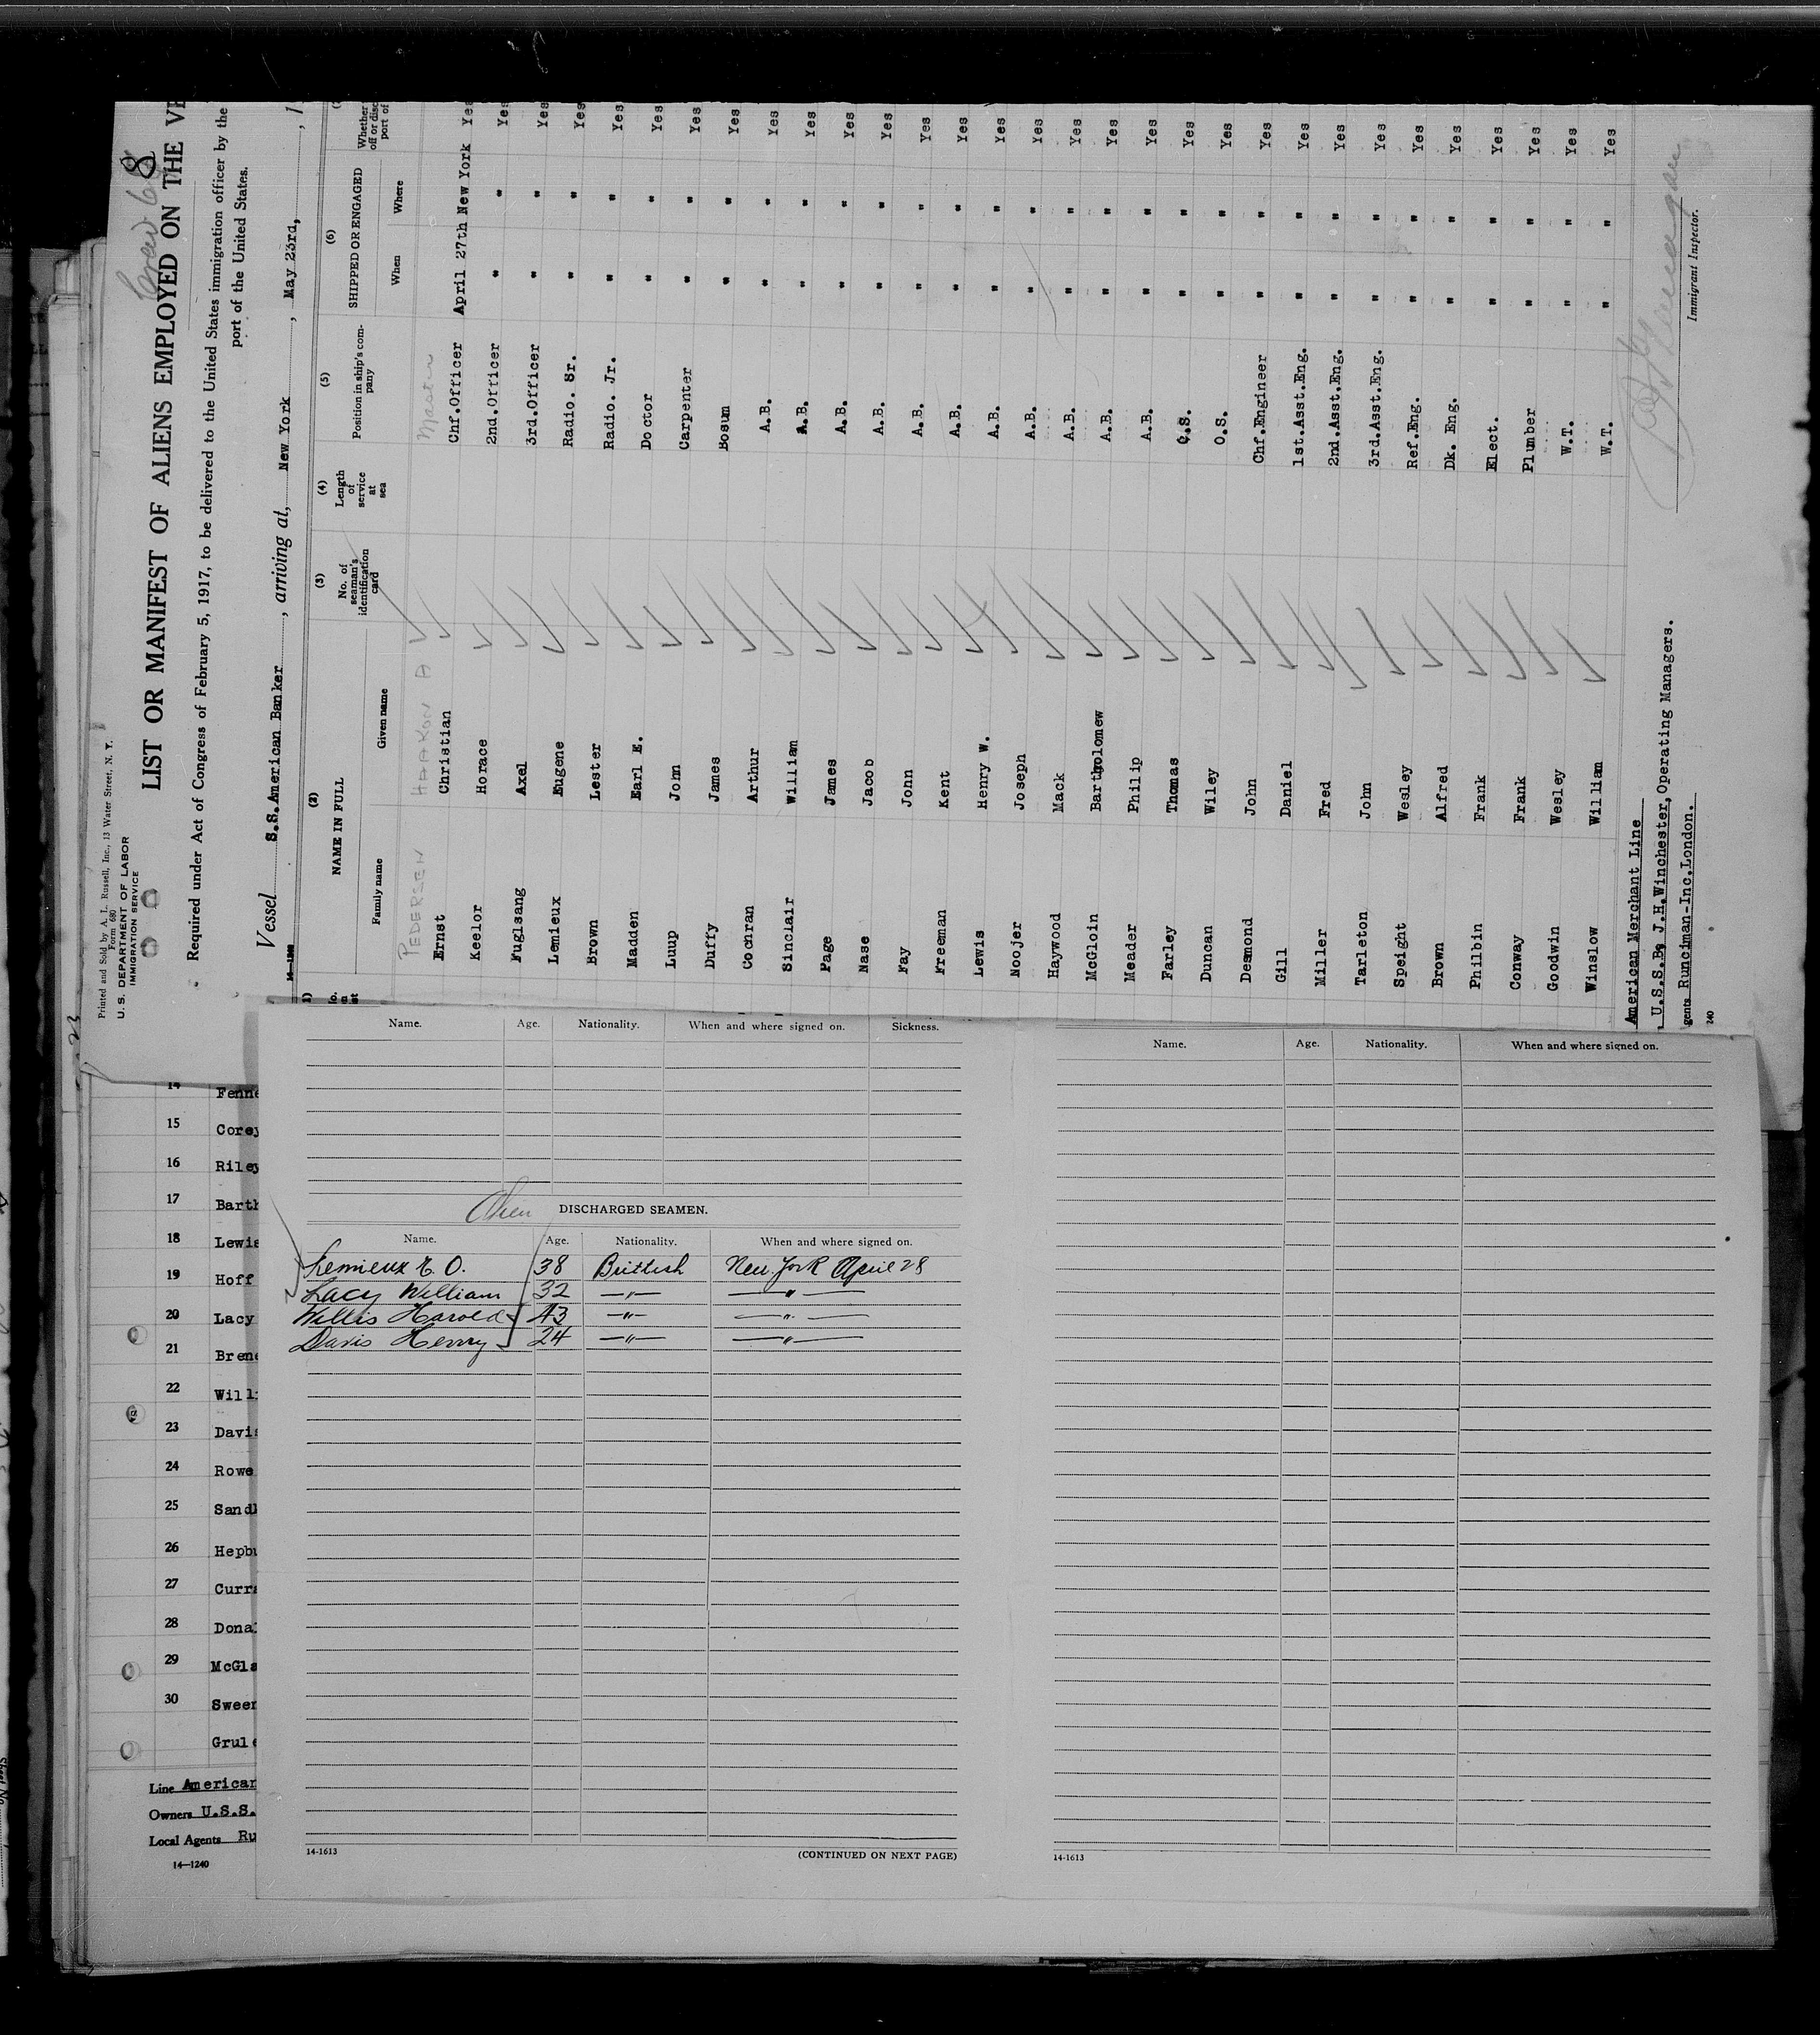 Printed and Sold by A. L. Russell, Inc., 13 Water Street, N. Y.
Form 680
U. S. DEPARTMENT OF LABOR
IMMIGRATION SERVICE
Crew 68
8
LIST OR MANIFEST OF ALIENS EMPLOYED ON THE VE
Required under Act of Congress of February 5, 1917, to be delivered to the United States immigration officer by the
port of the United States.
Vessel S.S.American Banker, arriving at, New York, May 23rd, , 1
(2) (3) (4) (5) (6)
NAME IN FULL No. of seaman's identification card Length of service at sea Position in ship's company SHIPPED OR ENGAGED Whether
Family name Given name When Where
PEDERSEN HAAKON A Master
Ernst Christian Chf.Officer April 27th New York Yes
Keelor Horace 2nd.Officer " " Yes
Fuglsang Axel 3rd.Officer " " Yes
Lemieux Eugene Radio. Sr. " " Yes
Brown Lester Radio. Jr. " " Yes
Madden Earl E. Doctor " " Yes
Luup John Carpenter " " Yes
Duffy James Bosun " " Yes
Cochran Arthur A.B. " " Yes
Sinclair William A.B. " " Yes
Page James A.B. " " Yes
Nase Jacob A.B. " " Yes
Fay John A.B. " " Yes
Freeman Kent A.B. " " Yes
Lewis Henry W. A.B. " " Yes
Noojer Joseph A.B. " " Yes
Haywood Mack A.B. " " Yes
McGloin Bartholomew A.B. " " Yes
Meader Philip A.B. " " Yes
Farley Thomas O.S. " " Yes
Duncan Wiley O.S. " " Yes
Desmond John Chf.Engineer " " Yes
Gill Daniel 1st.Asst.Eng. " " Yes
Miller Fred 2nd.Asst.Eng. " " Yes
Tarleton John 3rd.Asst.Eng. " " Yes
Speight Wesley Ref.Eng. " " Yes
Brown Alfred Dk. Eng. " " Yes
Philbin Frank Elect. " " Yes
Conway Frank Plumber " " Yes
Goodwin Wesley W.T. " " Yes
Winslow William W.T. " " Yes
American Merchant Line
U.S.S.B. J.H.Winchester, Operating Managers.
gents Runciman-Inc.London.
Immigrant Inspector.
240
Name. Age. Nationality. When and where signed on. Sickness.
DISCHARGED SEAMEN.
Name. Age. Nationality. When and where signed on.
Lemieux E. O. 38 Brittish New York April 28
Lacy William 32 —"— —"—
Willis Harold 43 —"— —"—
Davis Henry 24 —"— —"—
14-1613 (CONTINUED ON NEXT PAGE)
Name. Age. Nationality. When and where signed on.
14-1613
14 Fenne
15 Corey
16 Riley
17 Barth
18 Lewis
19 Hoff
20 Lacy
21 Bren
22 Will
23 Davis
24 Rowe
25 Sand
26 Hepbu
27 Curra
28 Dona
29 McGla
30 Sween
Grul
Line American
Owners U.S.S.
Local Agents Ru
14—1240